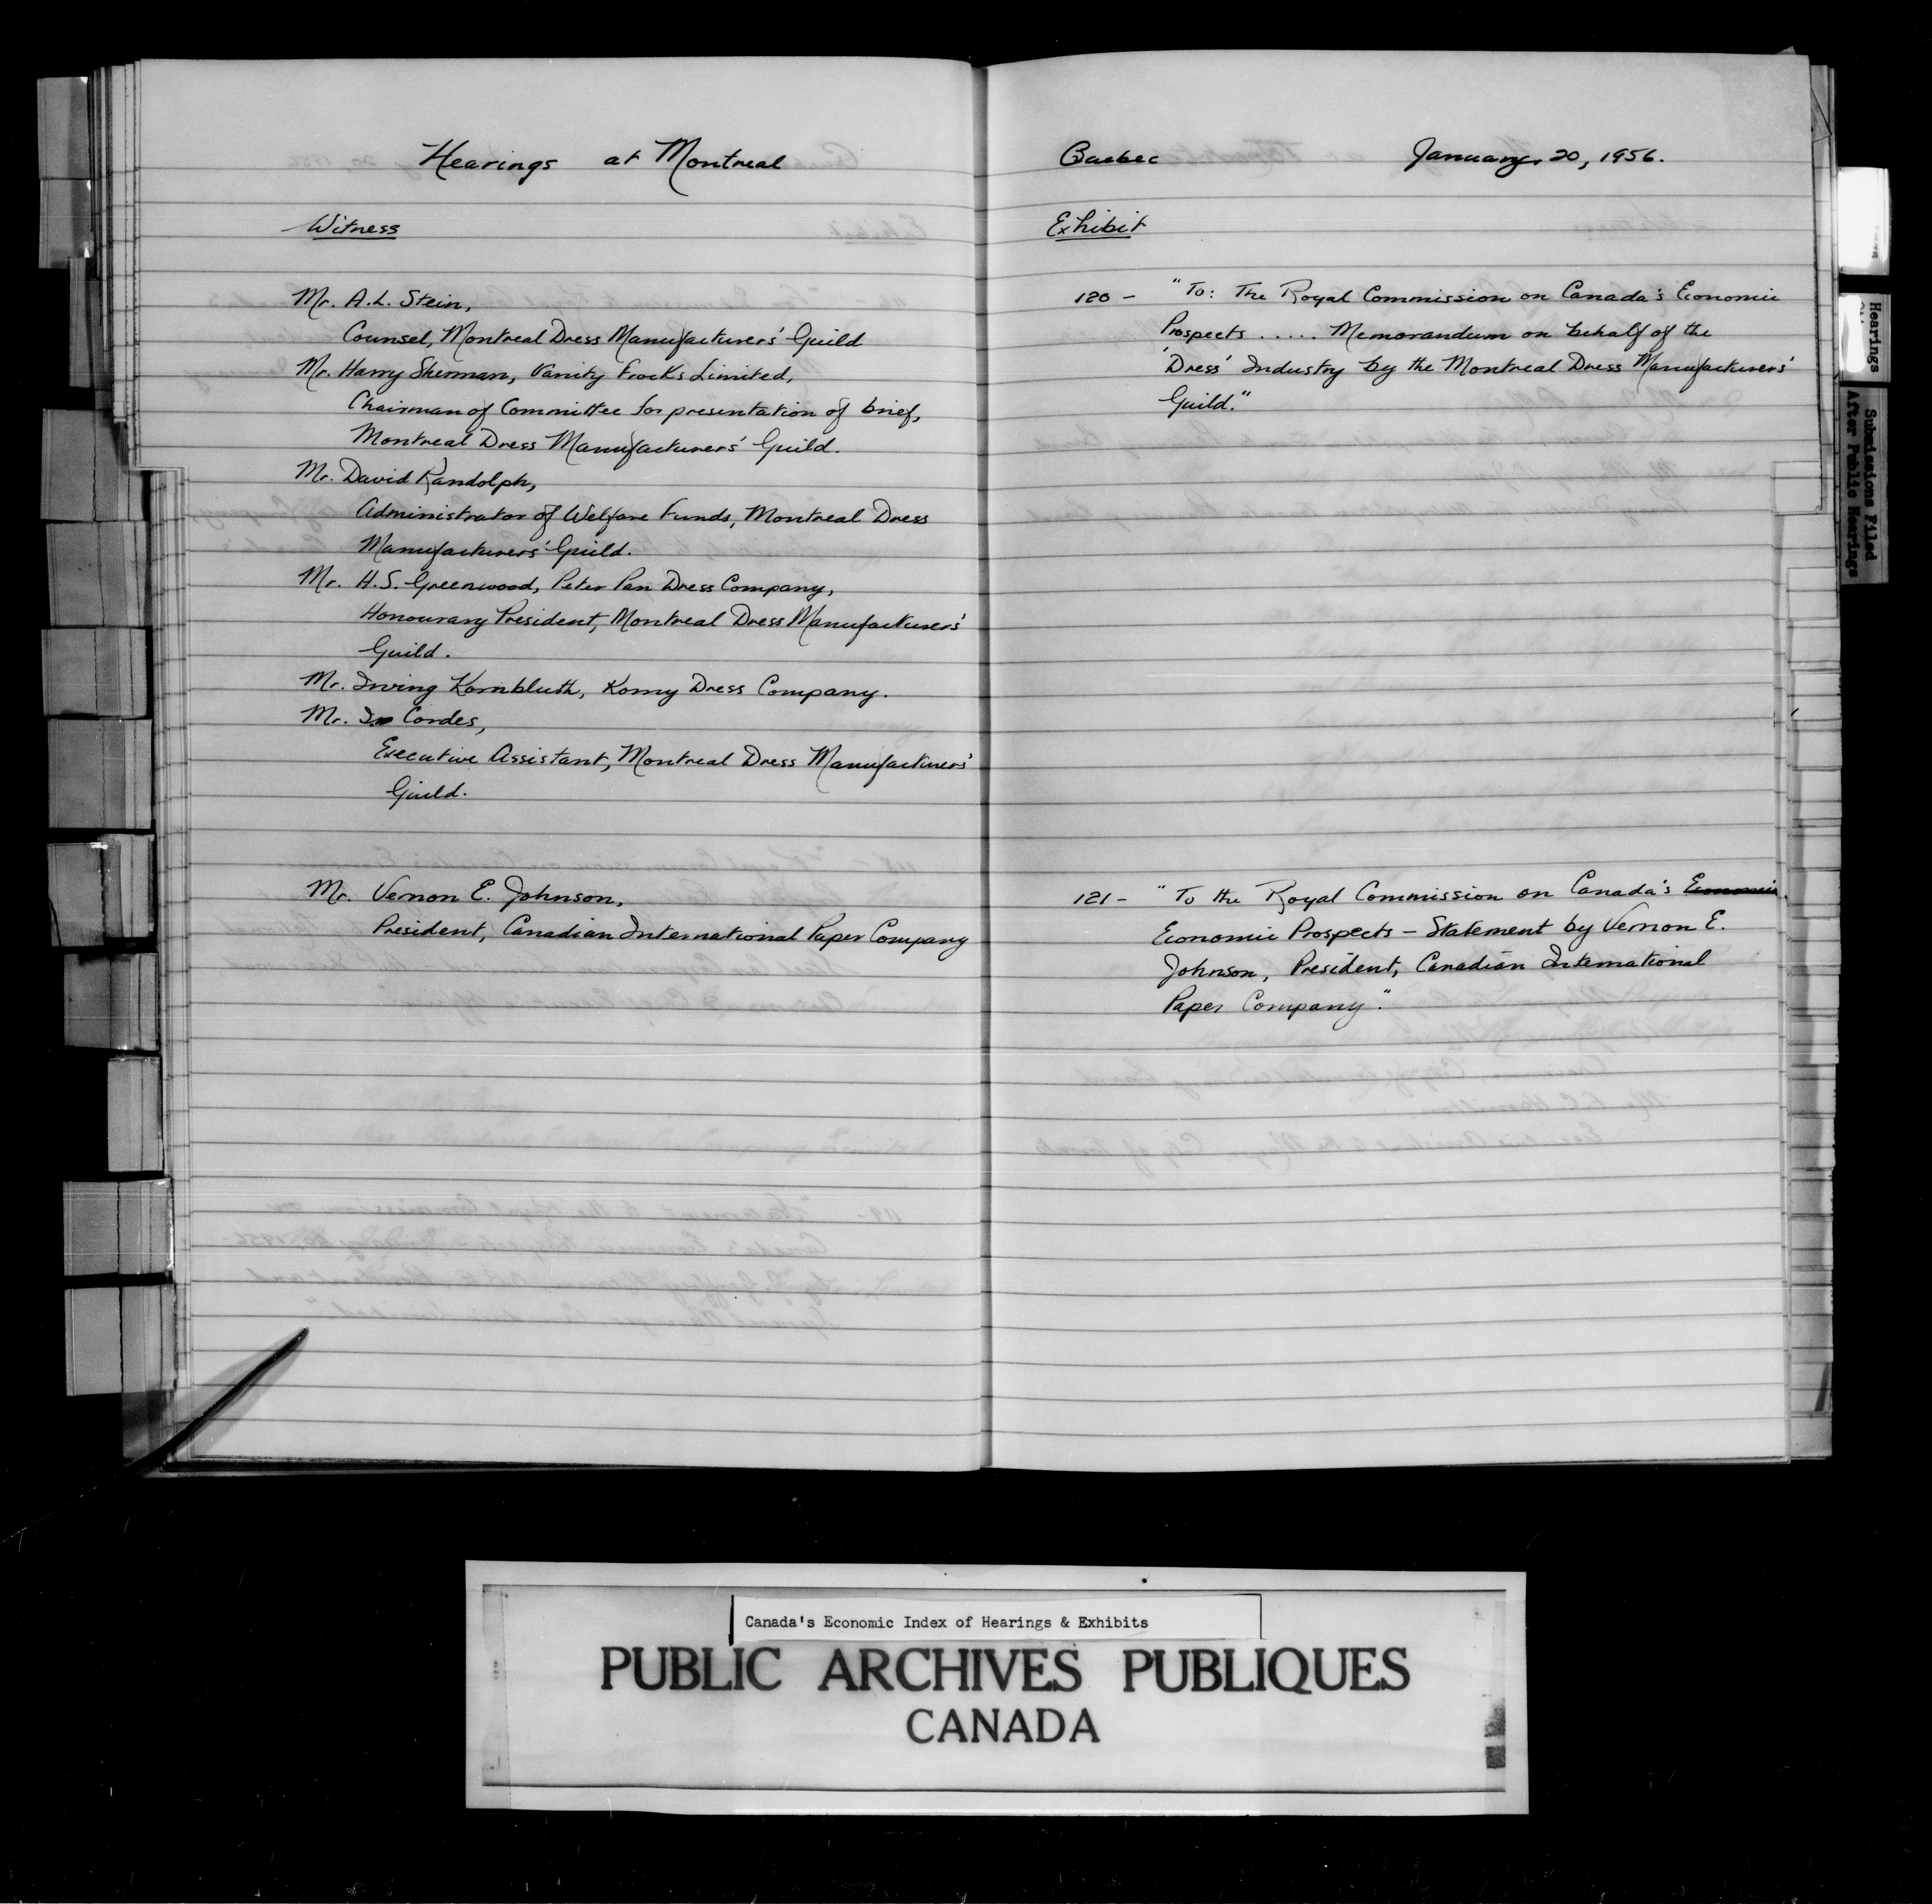 Hearings at Montreal
Witness
Mr. A.L. Stein,
Counsel, Montreal Dress Manufacturers' Guild
Mr. Harry Sherman, Vanity Frocks Limited,
Chairman of Committee for presentation of brief,
Montreal Dress Manufacturers' Guild.
Mr. David Randolph,
Administrator of Welfare Funds, Montreal Dress
Manufacturers' Guild.
Mr. H.S. Greenwood, Peter Pan Dress Company,
Honourary President, Montreal Dress Manufacturers'
Guild.
Mr. Irving Kornbluth, Korny Dress Company.
Mr. Cordes,
Executive Assistant, Montreal Dress Manufacturers'
Guild.
Mr. Vernon E. Johnson,
President, Canadian International Paper Company
Quebec January 20, 1956.
Exhibit
120 - "To: The Royal Commission on Canada's Economic
Prospects ..... Memorandum on behalf of the
'Dress' Industry by the Montreal Dress Manufacturers'
Guild."
121 - "To the Royal Commission on Canada's Economic
Economic Prospects - Statement by Vernon E.
Johnson, President, Canadian International
Paper Company."
Hearings
Submissions Filed
After Public Hearings
Canada's Economic Index of Hearings & Exhibits
PUBLIC ARCHIVES PUBLIQUES
CANADA